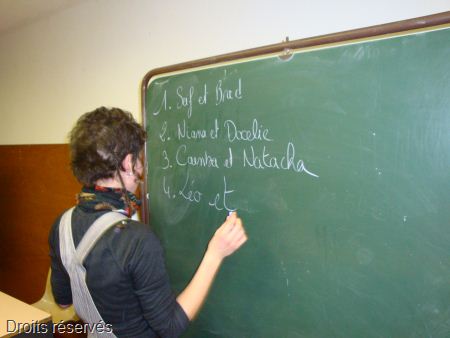 1. Saf et Brad
2. Niana et Docelie
3. Camba et Natacha
4. Léo et
Droits réservés